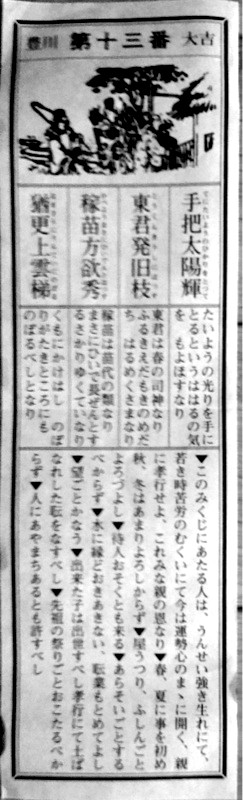 豊川 第十三番 大吉
手把太陽輝
東君発旧枝
稼苗方欲秀
猶更上雲梯
たいようの光りを手に
とるといふははるの気
をもよほすなり
東君は春の司神なり
ふるきえだもきのめだ
ち はるめくさまなり
稼苗は苗代の類なり
まさにひいで長ぜんとす
るさかりゆくていなり
くもにかけはし のぼ
りがたきところにも
のぼるべしとなり
▼このみくじにあたる人は、うんせい強き生れにて、
若き時苦労のむくいにて今は運勢心のまゝに開く、親
に孝行せよ、これみな親の恩なり▼春、夏に事を初め
秋、冬はあまりよろしからず▼屋うつり、ふしんごと
よろづよし▼待人おそくとも来る▼あらそいごとする
べからず▼水に縁どおきあきない、転業もとめてよし
▼望ごとかなう▼出来た子は出世すべし孝行にて土ば
なれした転をなすべし▼先祖の祭りごとおこたるべか
らず▼人にあやまちあるとも許すべし